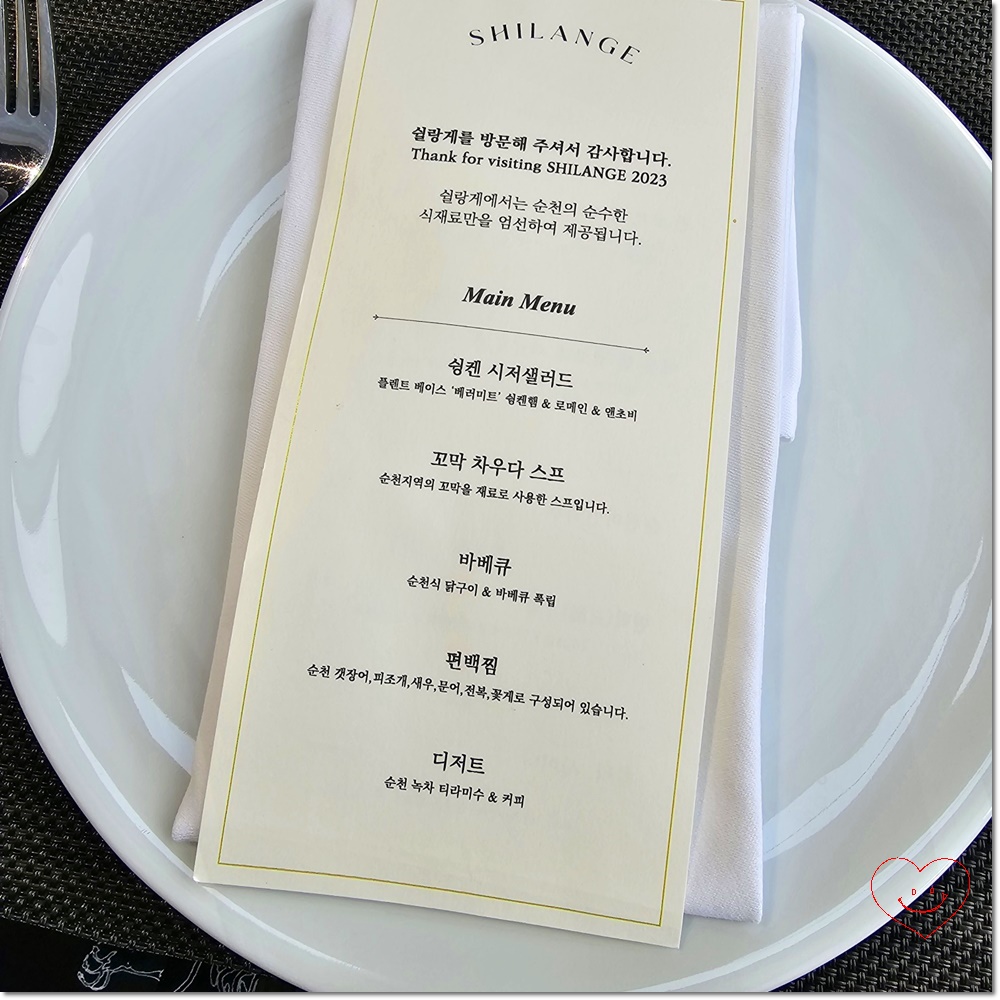 SHILANGE
쉴랑게를 방문해 주셔서 감사합니다.
Thank for visiting SHILANGE 2023
쉴랑게에서는 순천의 순수한
식재료만을 엄선하여 제공됩니다.
Main Menu
슁켄 시저샐러드
플렌트 베이스 '베러미트' 슁켄햄 & 로메인 & 앤초비
꼬막 차우다 스프
순천지역의 꼬막을 재료로 사용한 스프입니다.
바베큐
순천식 닭구이 & 바베큐 폭립
편백찜
순천 갯장어,피조개,새우,문어,전복,꽃게로 구성되어 있습니다.
디저트
순천 녹차 티라미수 & 커피